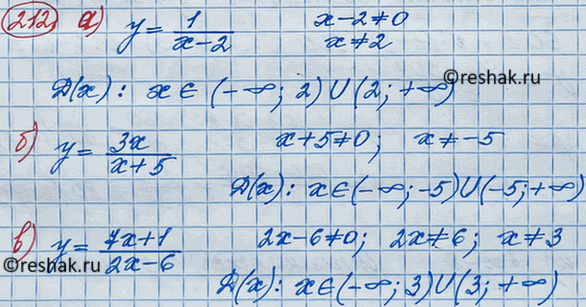 212. а) y = 1/(x-2) x-2≠0
x≠2
D(x): x∈(-∞; 2)∪(2; +∞)
©reshak.ru
б) y = 3x/(x+5) x+5≠0; x≠-5
D(x): x∈(-∞; -5)∪(-5; +∞)
в) y = (7x+1)/(2x-6) 2x-6≠0; 2x≠6; x≠3
©reshak.ru
D(x): x∈(-∞; 3)∪(3; +∞)